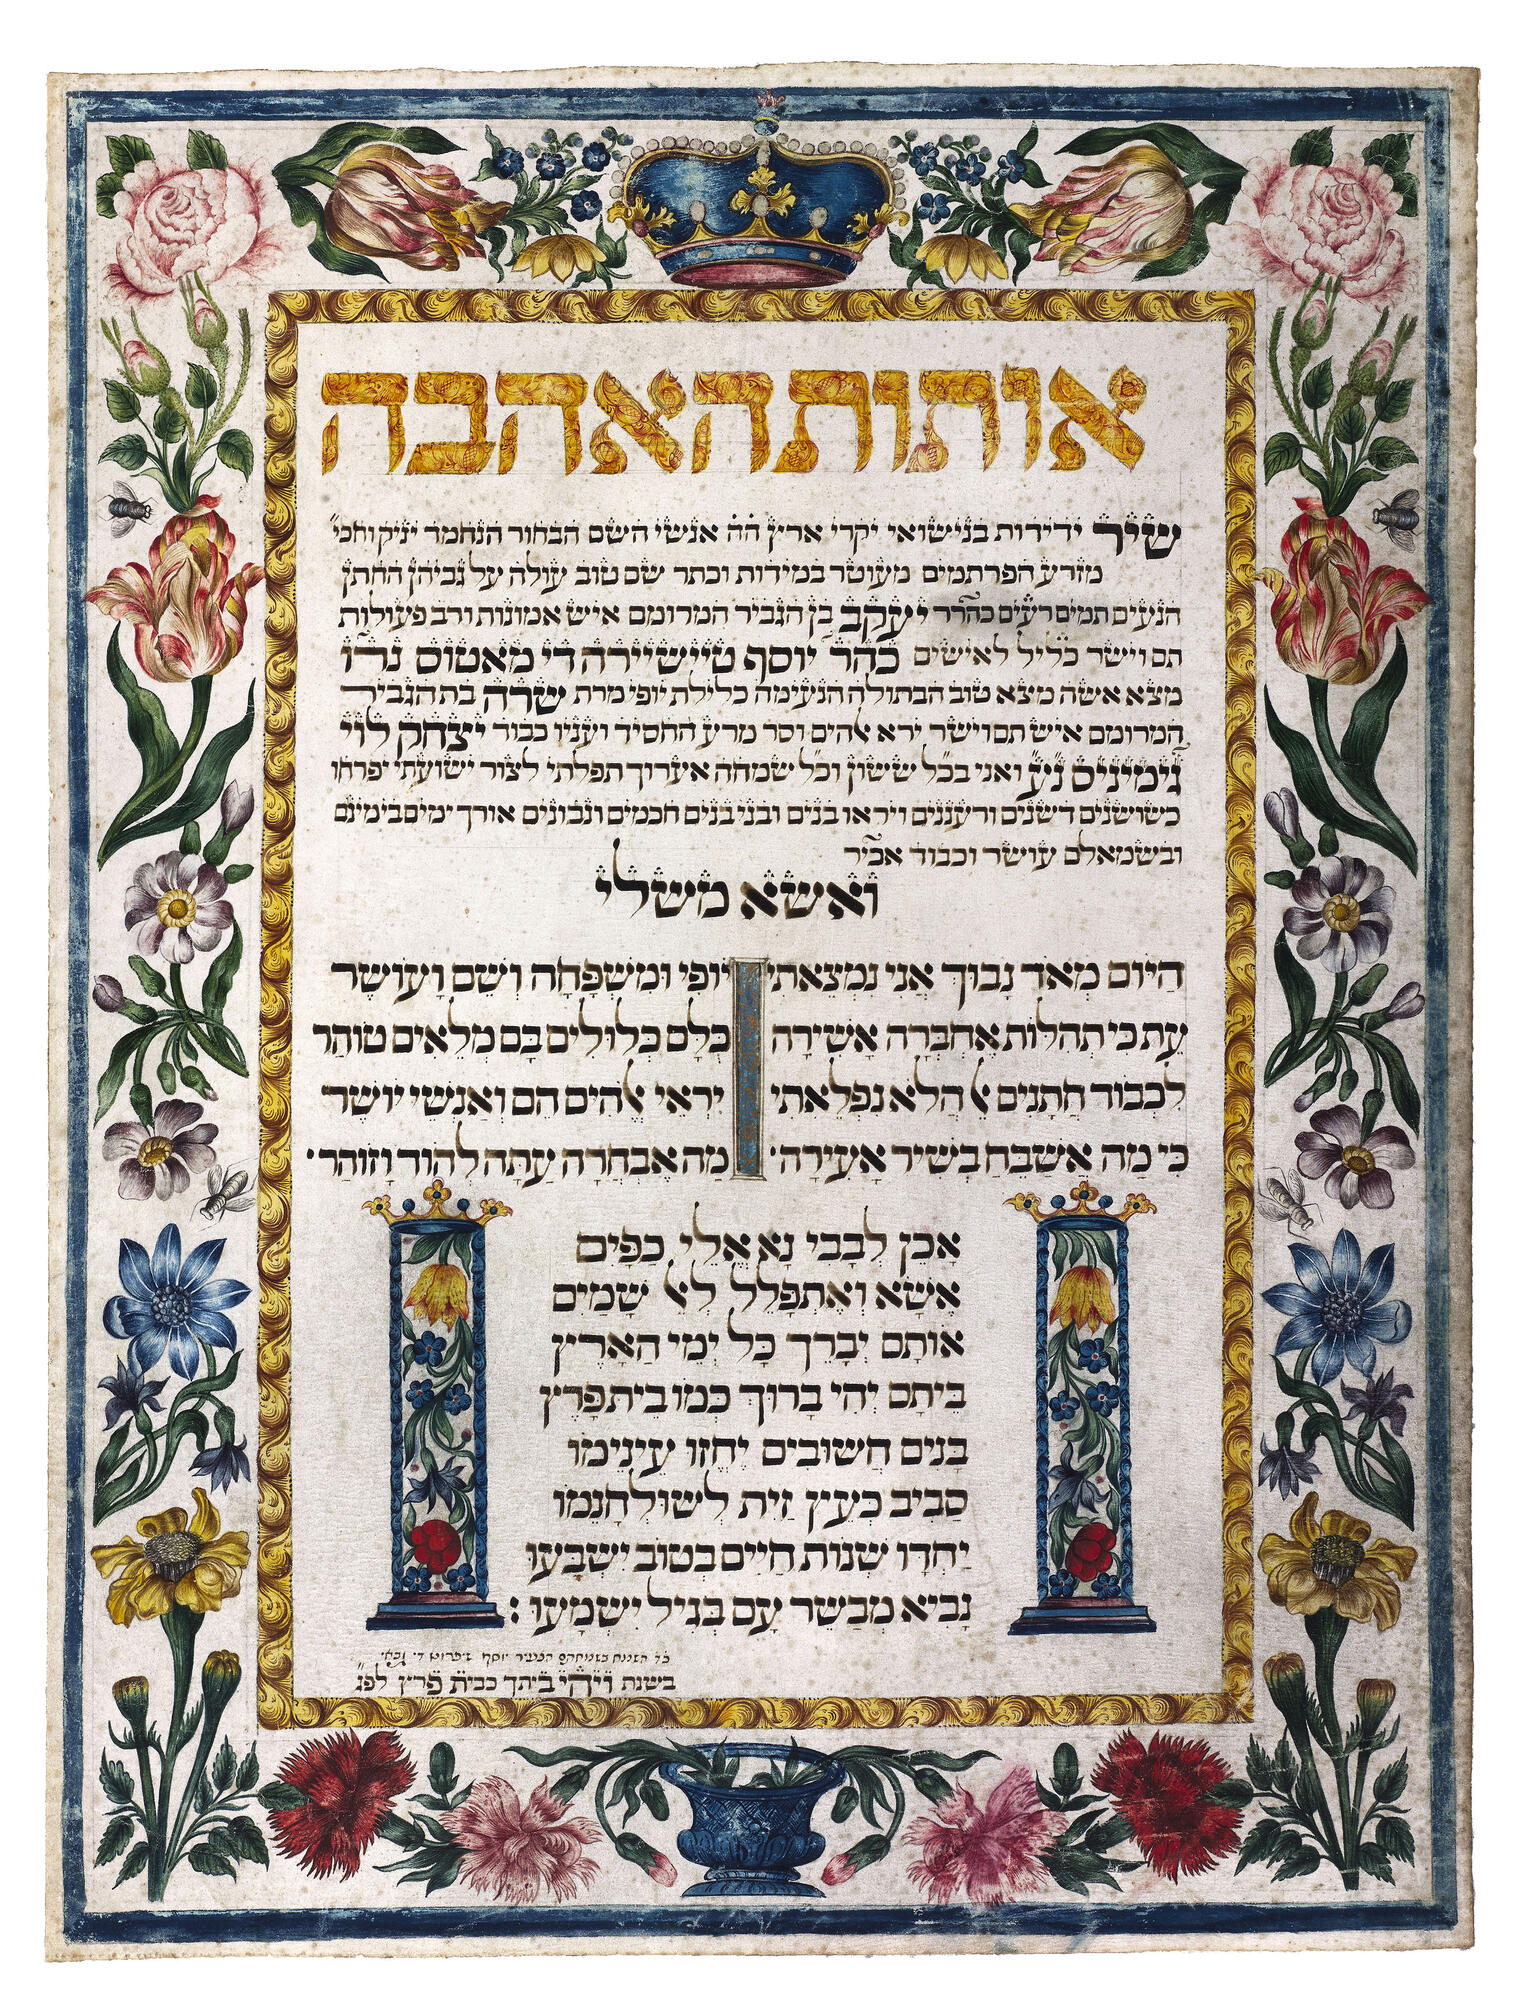 אותות האהבה
שיר ידידות בנישואי יקרי ארץ הה אנשי השם הבחור הנחמד יניק וחכי״
מזרע הפרתמים מעוטר במידות וכתר שם טוב עולה על גביהן החתן
הנעים תמים דעים כהר״ר יעקב בן הגביר המרומם איש אמונות ורב פעולות
תם וישר כליל לאישים כהר יוסף טיישיירה די מאטוס נר״ו
מצא אשה מצא טוב הבתולה הנעימה כלילת יופי מרת שרה בת הגביר
המרומם איש תם וישר ירא אלהים וסר מרע החסיד ועניו כבוד יצחק לוי
גימיניס נ״ע ואני בכל ששון וכל שמחה אערוך תפלתי לצור ישועתי יפרחו
כשושנים דשנים ורעננים ויראו בנים ובני בנים חכמים ונבונים אורך ימים בימינם
ובשמאלם עושר וכבוד אכי״ר
ואשא משלי
היום מְאד נָבוך אֲני נִמצאתי יופי ומִשְפָּחָה וְשֵם וָעושר
עֵת כי תהלות אֶחְבְּרה אָשִירה כֻּלָם כְּלולים בָם מלֵאים טוהַר
לִכבוד חֲתָנים אל הלא נפלאתי יראי אלהים הם ואנשי יושר
כי מה אֲשבח בְשיר אָעירה׃ מה אבחרה עתה להוד וזוהר׃
אכן לְבָבי נָא אֱלֵי כַפַּים
אֶשא וְאֶתפַּלל לְאל שָמַיִם
אותָם יְבָרֵך כָּל יְמי הַאָרֶץ
בֵּיתָם יְהי בָרוּך כְּמו בֵית פָּרֶץ
בָּנים חֲשובים יֶחֱזו עֵינֵימו
סָביב כְּעֵץ זַית לְשולְחָנֵמו
יַחְדּו שְנות חַיים בְטוב יִשְבְּעו
נָביא מְבַשר עָם בְּגיל יִשְמָעו׃
כד השמח בשמחתם הצעיר יוסף
בשנת ויהי ביתך כבית פרץ לפ״ג